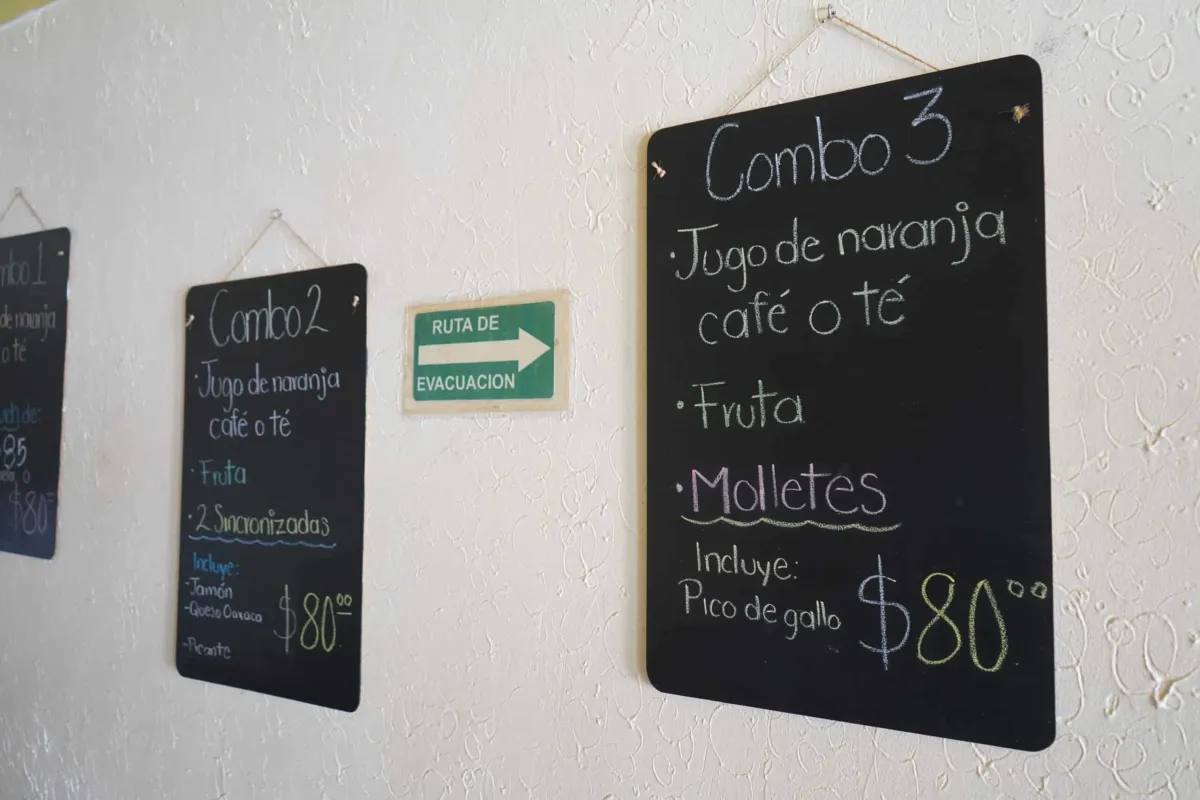 de naranja
o té
85
$80
Combo 2
·Jugo de naranja
café o té
·Fruta
·2 Sincronizadas
Incluye:
-Jamón
-Queso Oaxaca
-Picante
$80⁰⁰
RUTA DE
EVACUACION
Combo 3
·Jugo de naranja
café o té
·Fruta
·Molletes
Incluye:
Pico de gallo
$80⁰⁰